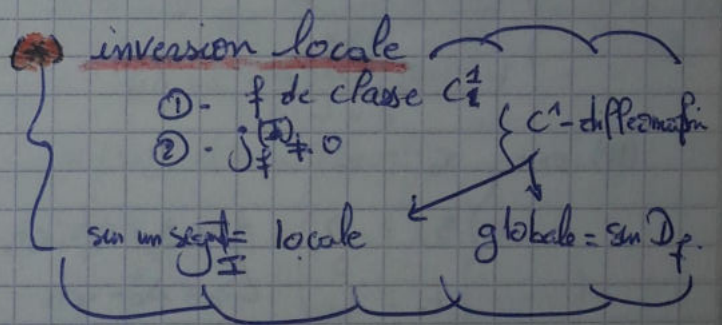 inversion locale
① - f de classe C¹
② - j_f(x) ≠ 0
C¹-difféomorphisme
sur un segmt I = locale
globale = sur D_f.